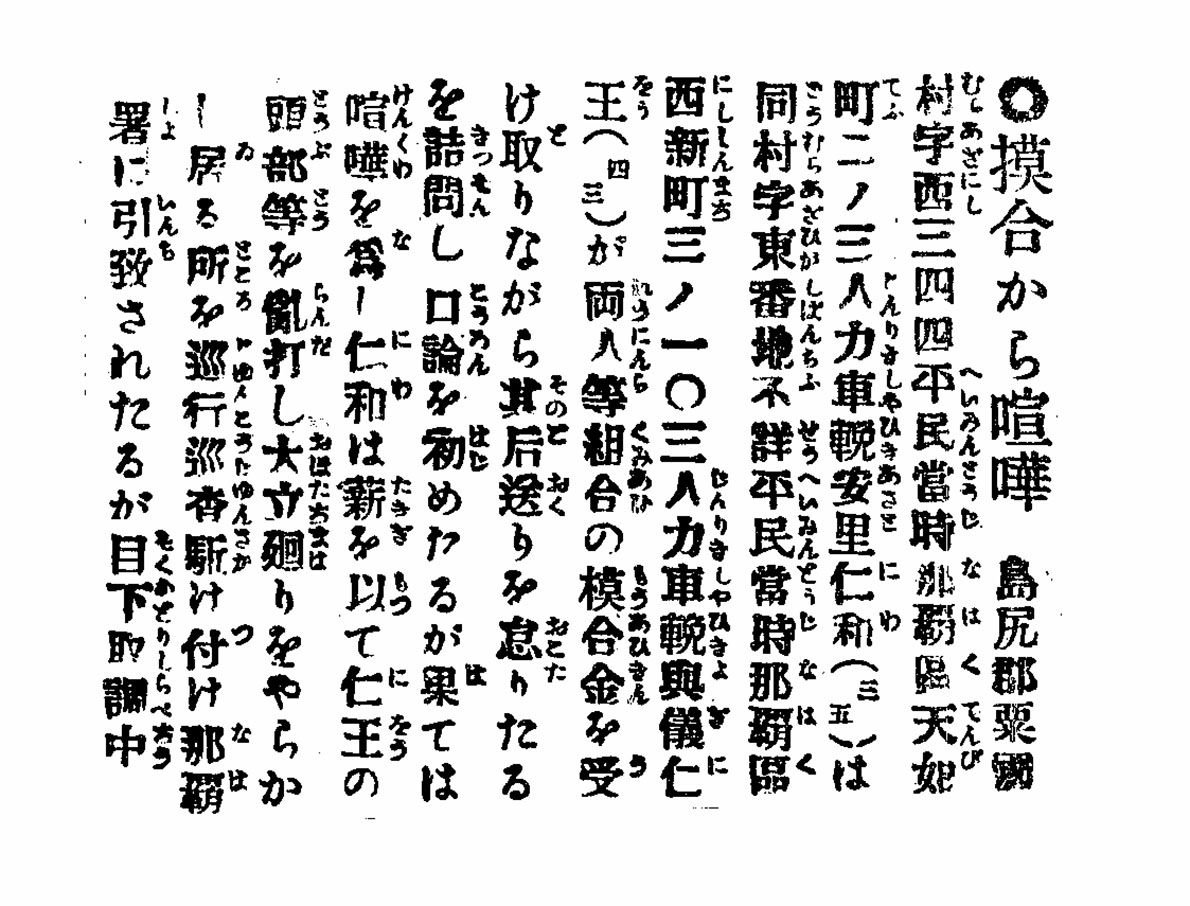 ◎摸合から喧嘩 島尻郡粟國
村字西三四四平民當時那覇區天妃
町二ノ三人力車輓安里仁和(三五)は
同村字東番地不詳平民當時那覇區
西新町三ノ一〇三人力車輓與儀仁
王(四三)が両人等組合の模合金を受
け取りながら其后送りを怠りたる
を詰問し口論を初めたるが果ては
喧嘩を爲し仁和は薪を以て仁王の
頭部等を亂打し大立廻りをやらか
し居る所を巡行巡査駈け付け那覇
署に引致されたるが目下取調中